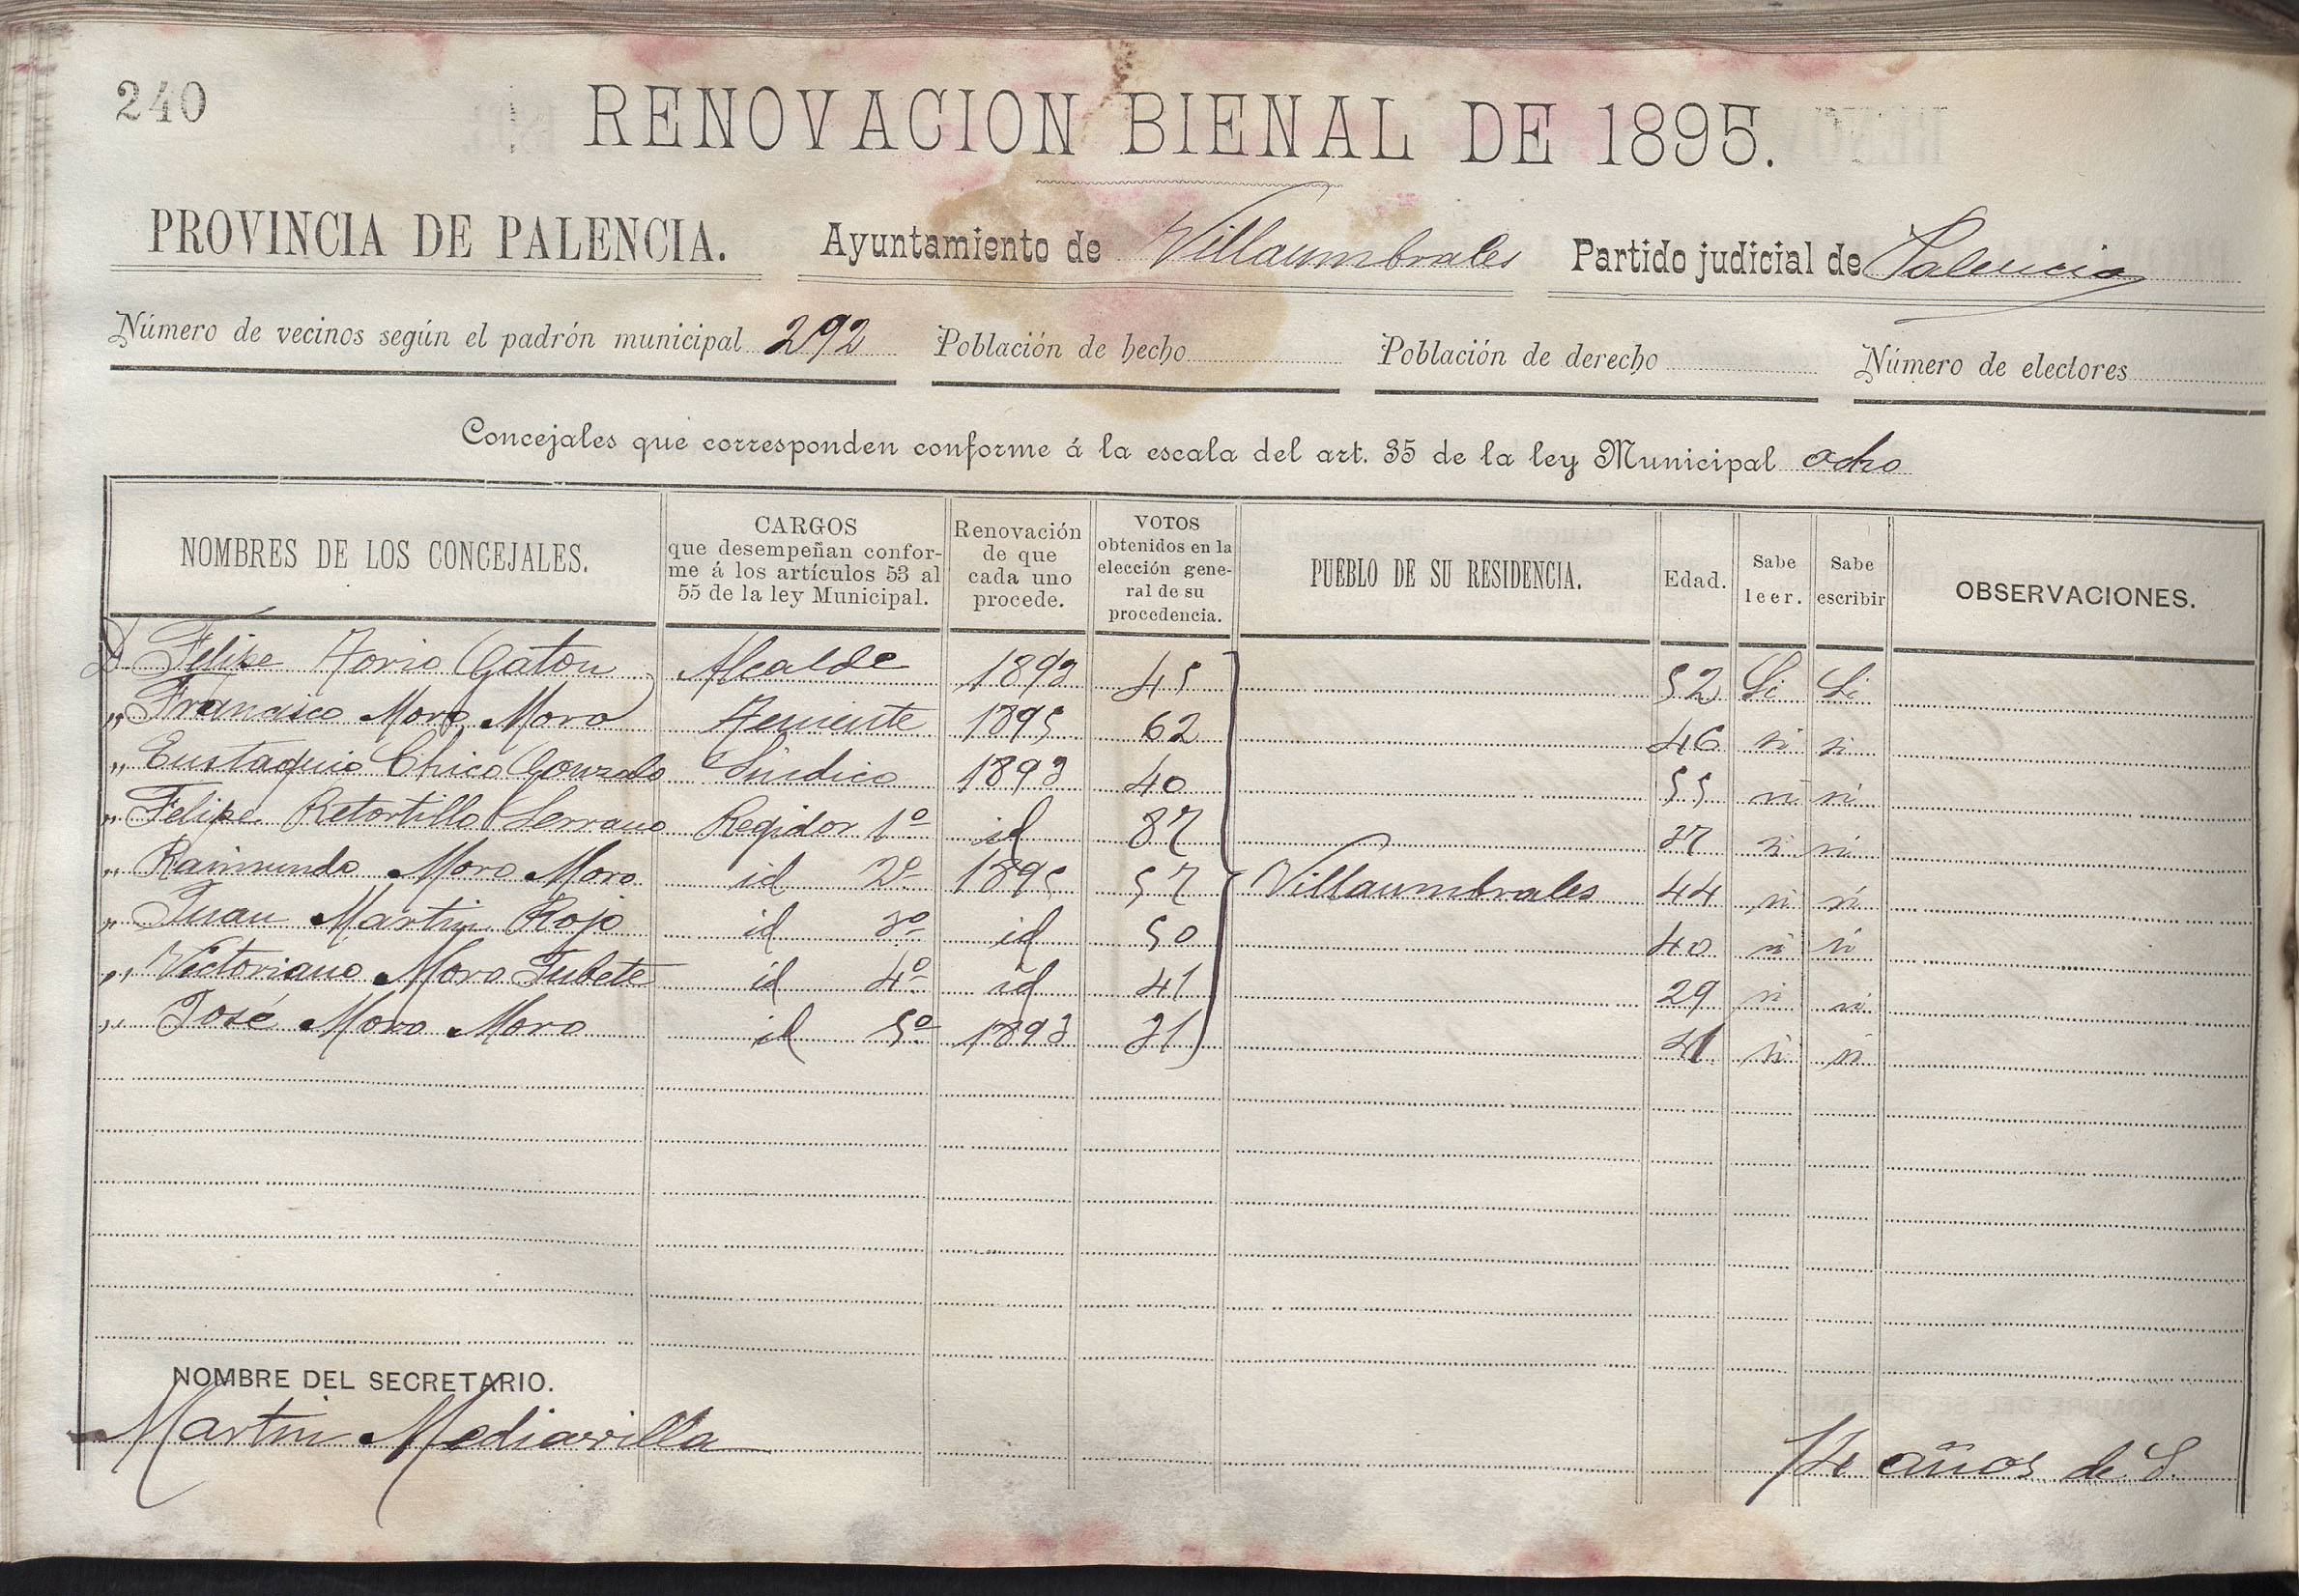 240
RENOVACION BIENAL DE 1895.
PROVINCIA DE PALENCIA. Ayuntamiento de Villaumbrales Partido judicial de Palencia
Número de vecinos según el padrón municipal 292 Población de hecho Población de derecho Número de electores
Concejales que corresponden conforme á la escala del art. 35 de la ley Municipal ocho
NOMBRES DE LOS CONCEJALES. CARGOS que desempeñan conforme á los artículos 53 al 55 de la ley Municipal. Renovación de que cada uno procede. VOTOS obtenidos en la elección general de su procedencia. PUEBLO DE SU RESIDENCIA. Edad. Sabe leer. Sabe escribir OBSERVACIONES.
D. Felipe Torio Gaton Alcalde 1893 45 52 Si Si
„ Francisco Moro Moro Teniente 1895 62 46 si si
„ Eustaquio Chico Gonzalo Sindico 1893 40 55 si si
„ Felipe Retortillo Serrano Regidor 1º id 87 37 si si
„ Raimundo Moro Moro id 2º 1895 57 Villaumbrales 44 si si
„ Juan Martin Rojo id 3º id 50 40 si si
„ Victoriano Moro Tubete id 4º id 41 29 si si
„ José Moro Moro id 5º 1893 31 si si
NOMBRE DEL SECRETARIO.
Martin Mediavilla
14 años de S.